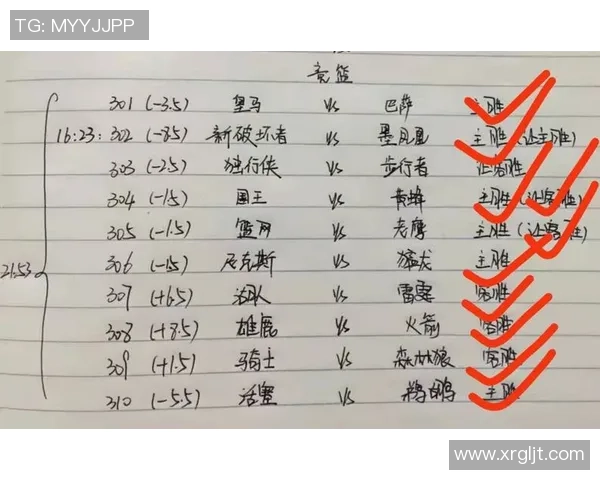 TG: MYYJJPP
竞篮
301 (-3.5) 皇马 VS 巴萨 主胜
16:23: 302 (-8.5) 新破坏者 VS 墨 主胜 (让主胜)
303 (-2.5) 独行侠 VS 步行者 让客胜
304 (-1.5) 国王 VS 黄蜂 主胜 (让客胜)
305 (-1.5) 篮网 VS 老鹰 主胜 (让客胜)
21:53 306 (-1.5) 尼克斯 VS 猛龙 主胜
307 (+6.5) VS 雷霆 客胜
308 (+8.5) 雄鹿 VS 火箭 客胜
309 (+1.5) 骑士 VS 森林狼 客胜
310 (-5.5) 活塞 VS 鹈鹕 主胜
www.xrgljt.com